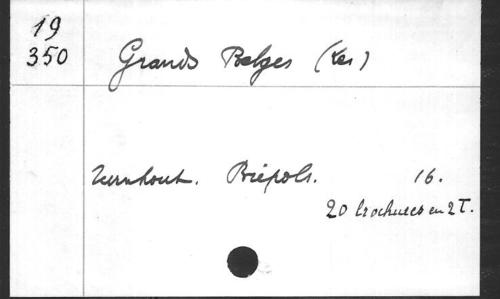 19
350
Grands Belges (Les)
Turnhout. Brépols. 16.
20 brochures en 2 T.